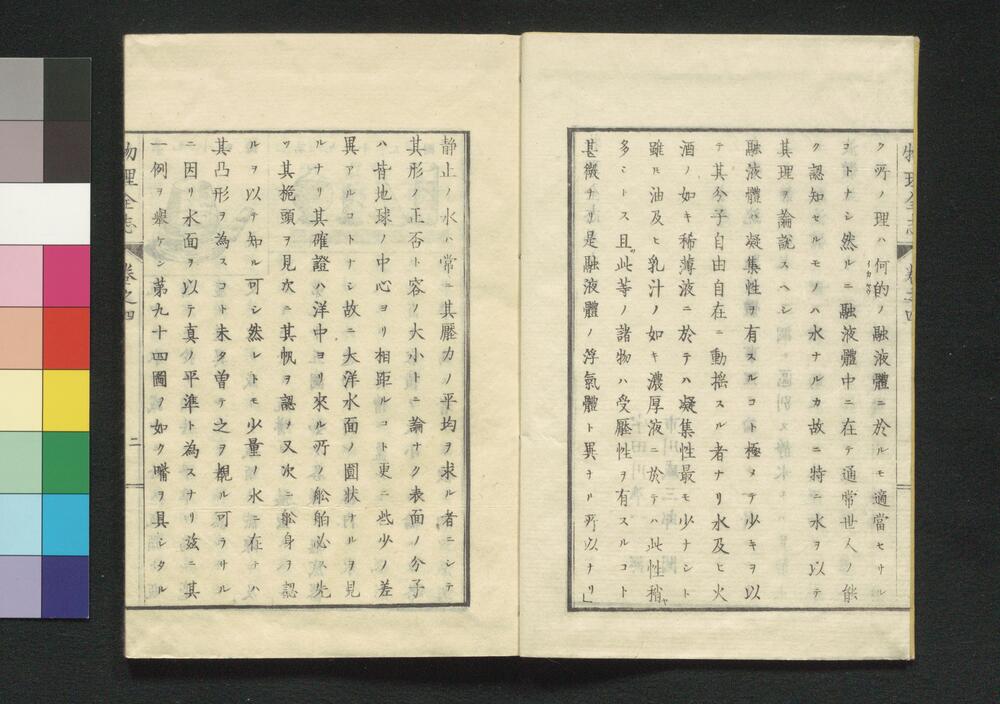 物理全志 卷之四
ク所ノ理ハ何的ノ融液體ニ於ルモ適當セサル
コトナシ然ルニ融液體中ニ在テ通常世人ノ能
ク認知セルモノハ水ナルカ故ニ特ニ水ヲ以テ
其理ヲ論說スヘシ
融液體ハ凝集性ヲ有スルコト極メテ少キヲ以
テ其分子自由自在ニ動搖スル者ナリ水及ヒ火
酒ノ如キ稀薄液ニ於テハ凝集性最モ少ナシト
雖𪜈油及ヒ乳汁ノ如キ濃厚液ニ於テハ此性稍
多シトス且此等ノ諸物ハ受壓性ヲ有スルコト
甚微ナリ是融液體ノ浮氣體ト異ナル所以ナリ」
靜止ノ水ハ常ニ其壓力ノ平均ヲ求ル者ニシテ
其形ノ正否ト容ノ大小トニ論ナク表面ノ分子
ハ皆地球ノ中心ヨリ相距ルコト更ニ些少ノ差
異アルコトナシ故ニ大洋水面ノ圓狀ナルヲ見
ルナリ其確證ハ洋中ヨリ來ル所ノ舩舶必ス先
ツ其桅頭ヲ見次ニ其帆ヲ認メ又次ニ舩身ヲ認
ルヲ以テ知ル可シ然レトモ少量ノ水ニ在テハ
其凸形ヲ為スコト未タ曽テ之ヲ覩ル可ラサル
ニ因リ水面ヲ以テ真ノ平準ト為スナリ茲ニ其
一例ヲ擧ケン第九十四圖ノ如ク嘴ヲ具シタル
物理全志 卷之四 二